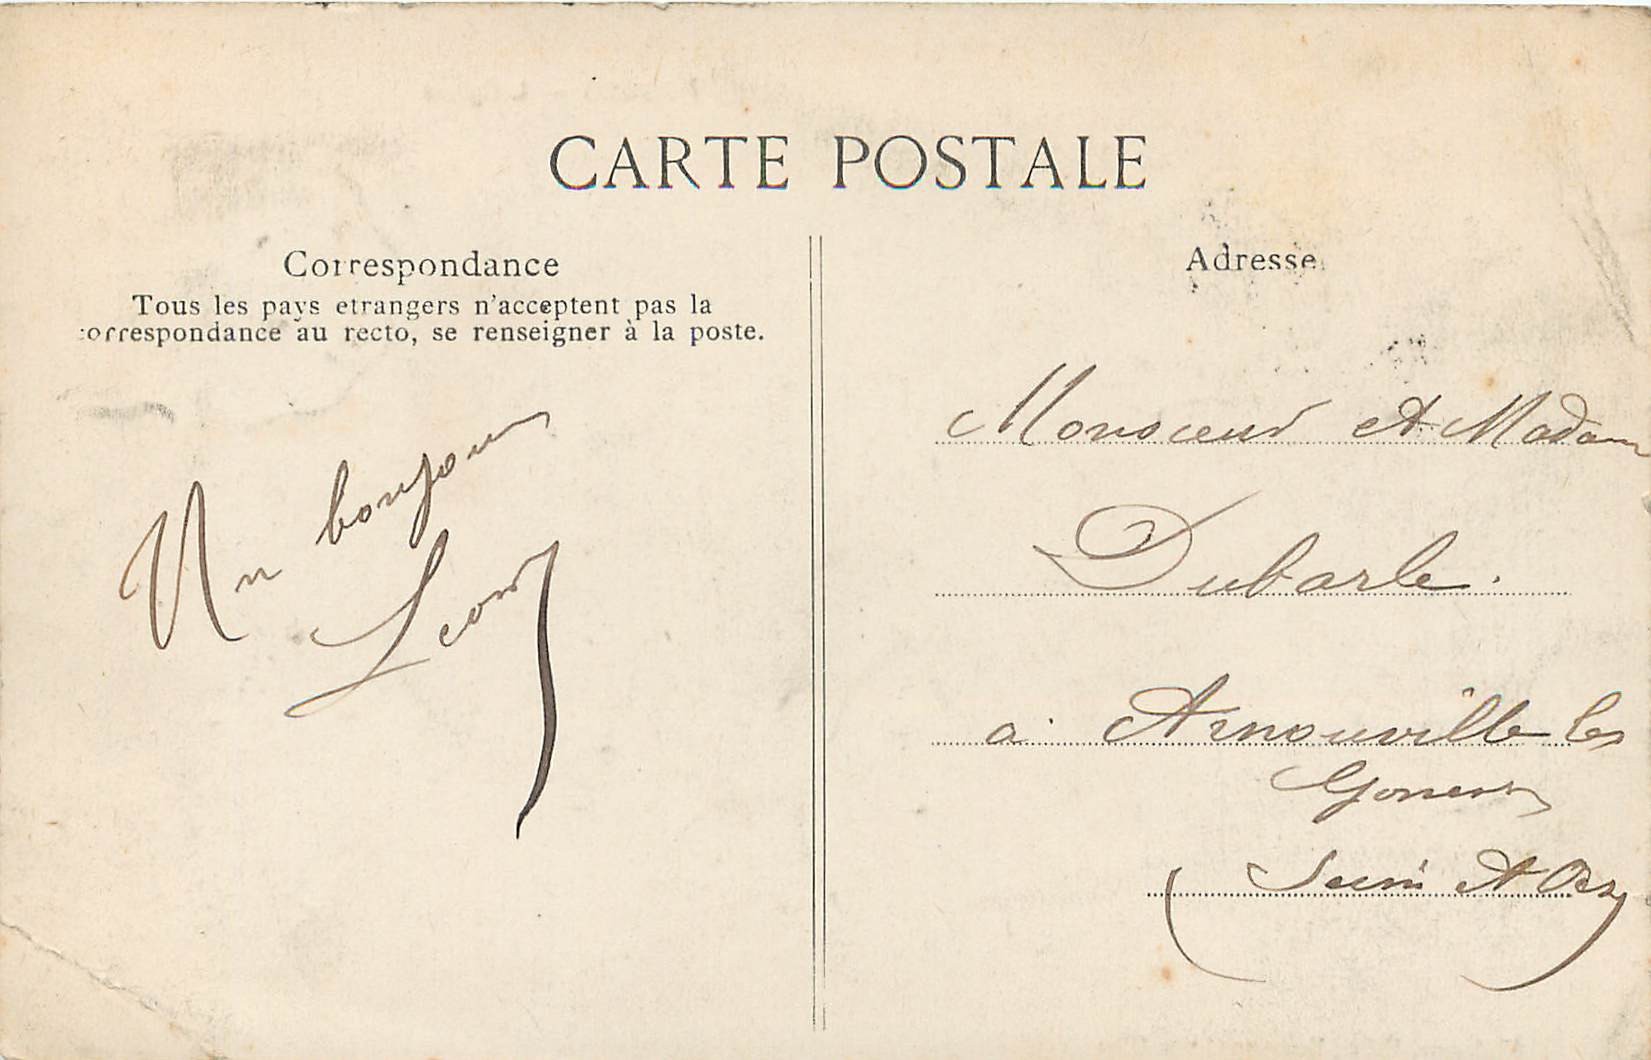 CARTE POSTALE
Correspondance
Tous les pays etrangers n'acceptent pas la
correspondance au recto, se renseigner à la poste.
Un bonjour
Leon
Adresse
Monsieur et Madam
Dubarle.
a Arnouville les
Goness
(Seine et Oise)